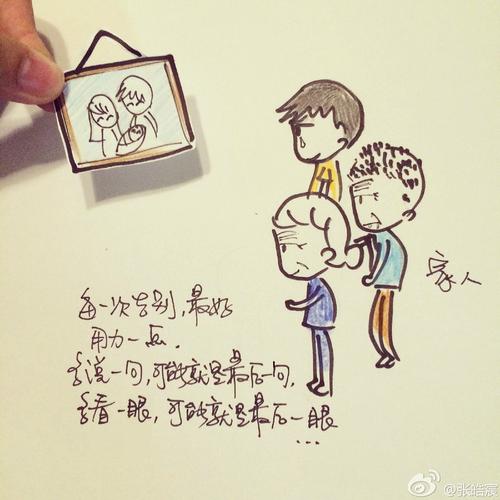 家人
每一次告别,最好
用力一点.
多说一句,可能就是最后一句,
多看一眼,可能就是最后一眼
...
@张皓宸